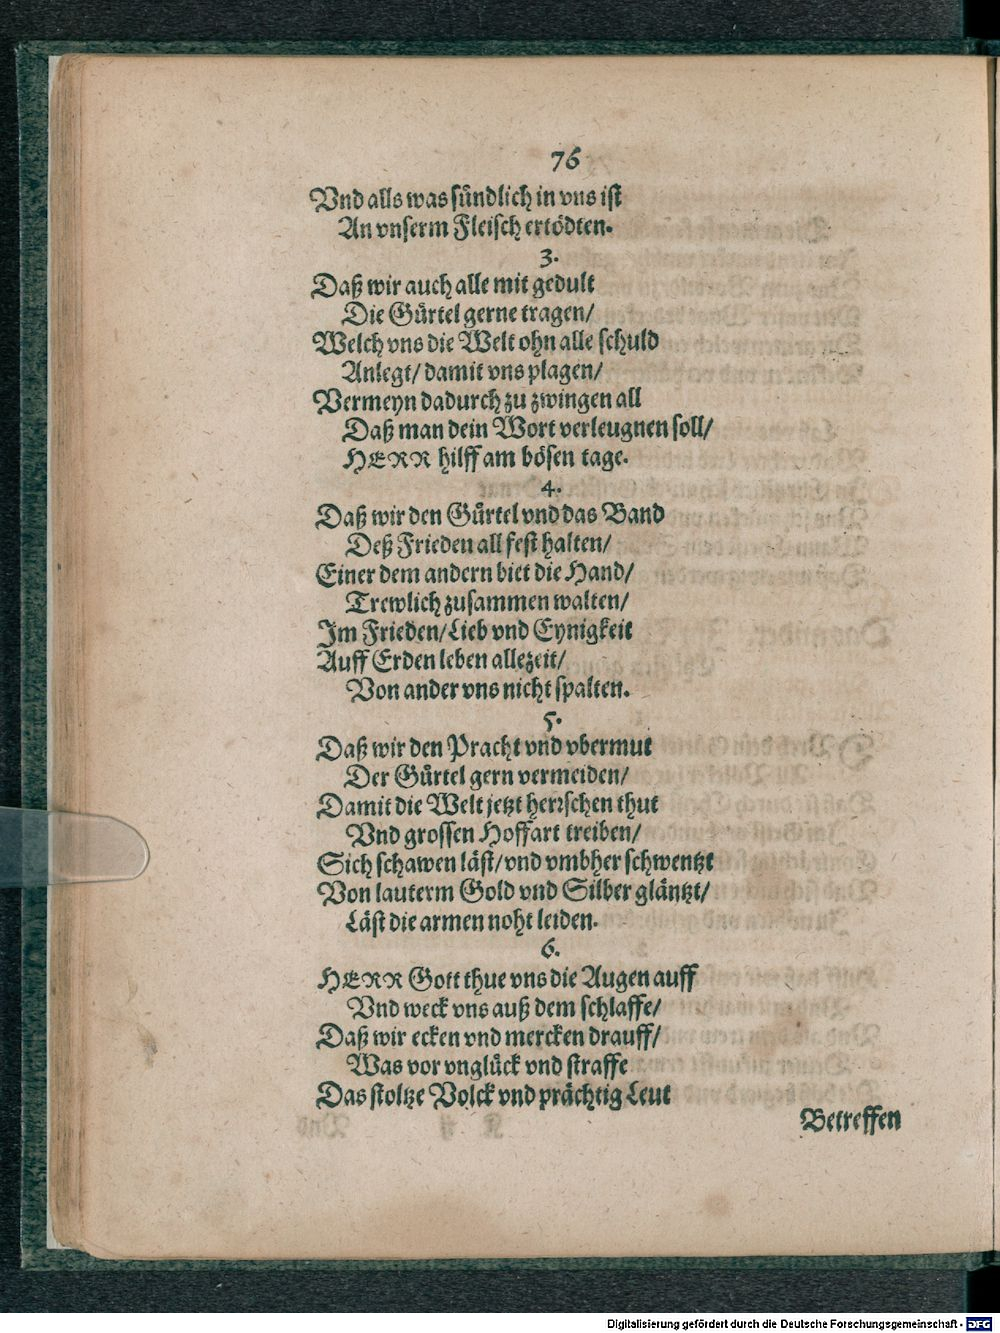 76
Vnd alls was sündlich in vns ist
An vnserm Fleisch ertödten.
3.
Daß wir auch alle mit gedult
Die Gürtel gerne tragen/
Welch vns die Welt ohn alle schuld
Anlegt/ damit vns plagen/
Vermeyn dadurch zu zwingen all
Daß man dein Wort verleugnen soll/
HERR hilff am bösen tage.
4.
Daß wir den Gürtel vnd das Band
Deß Frieden all fest halten/
Einer dem andern biet die Hand/
Trewlich zusammen walten/
Im Frieden/ Lieb vnd Eynigkeit
Auff Erden leben allezeit/
Von ander vns nicht spalten.
5.
Daß wir den Pracht vnd vbermut
Der Gürtel gern vermeiden/
Damit die Welt jetzt herrschen thut
Vnd grossen Hoffart treiben/
Sich schawen läst/ vnd vmbher schwentzt
Von lauterm Gold vnd Silber gläntzt/
Läst die armen noht leiden.
6.
HERR Gott thue vns die Augen auff
Vnd weck vns auß dem schlaffe/
Daß wir ecken vnd mercken drauff/
Was vor vnglück vnd straffe
Das stoltze Volck vnd prächtig Leut
Betreffen
Digitalisierung gefördert durch die Deutsche Forschungsgemeinschaft - DFG